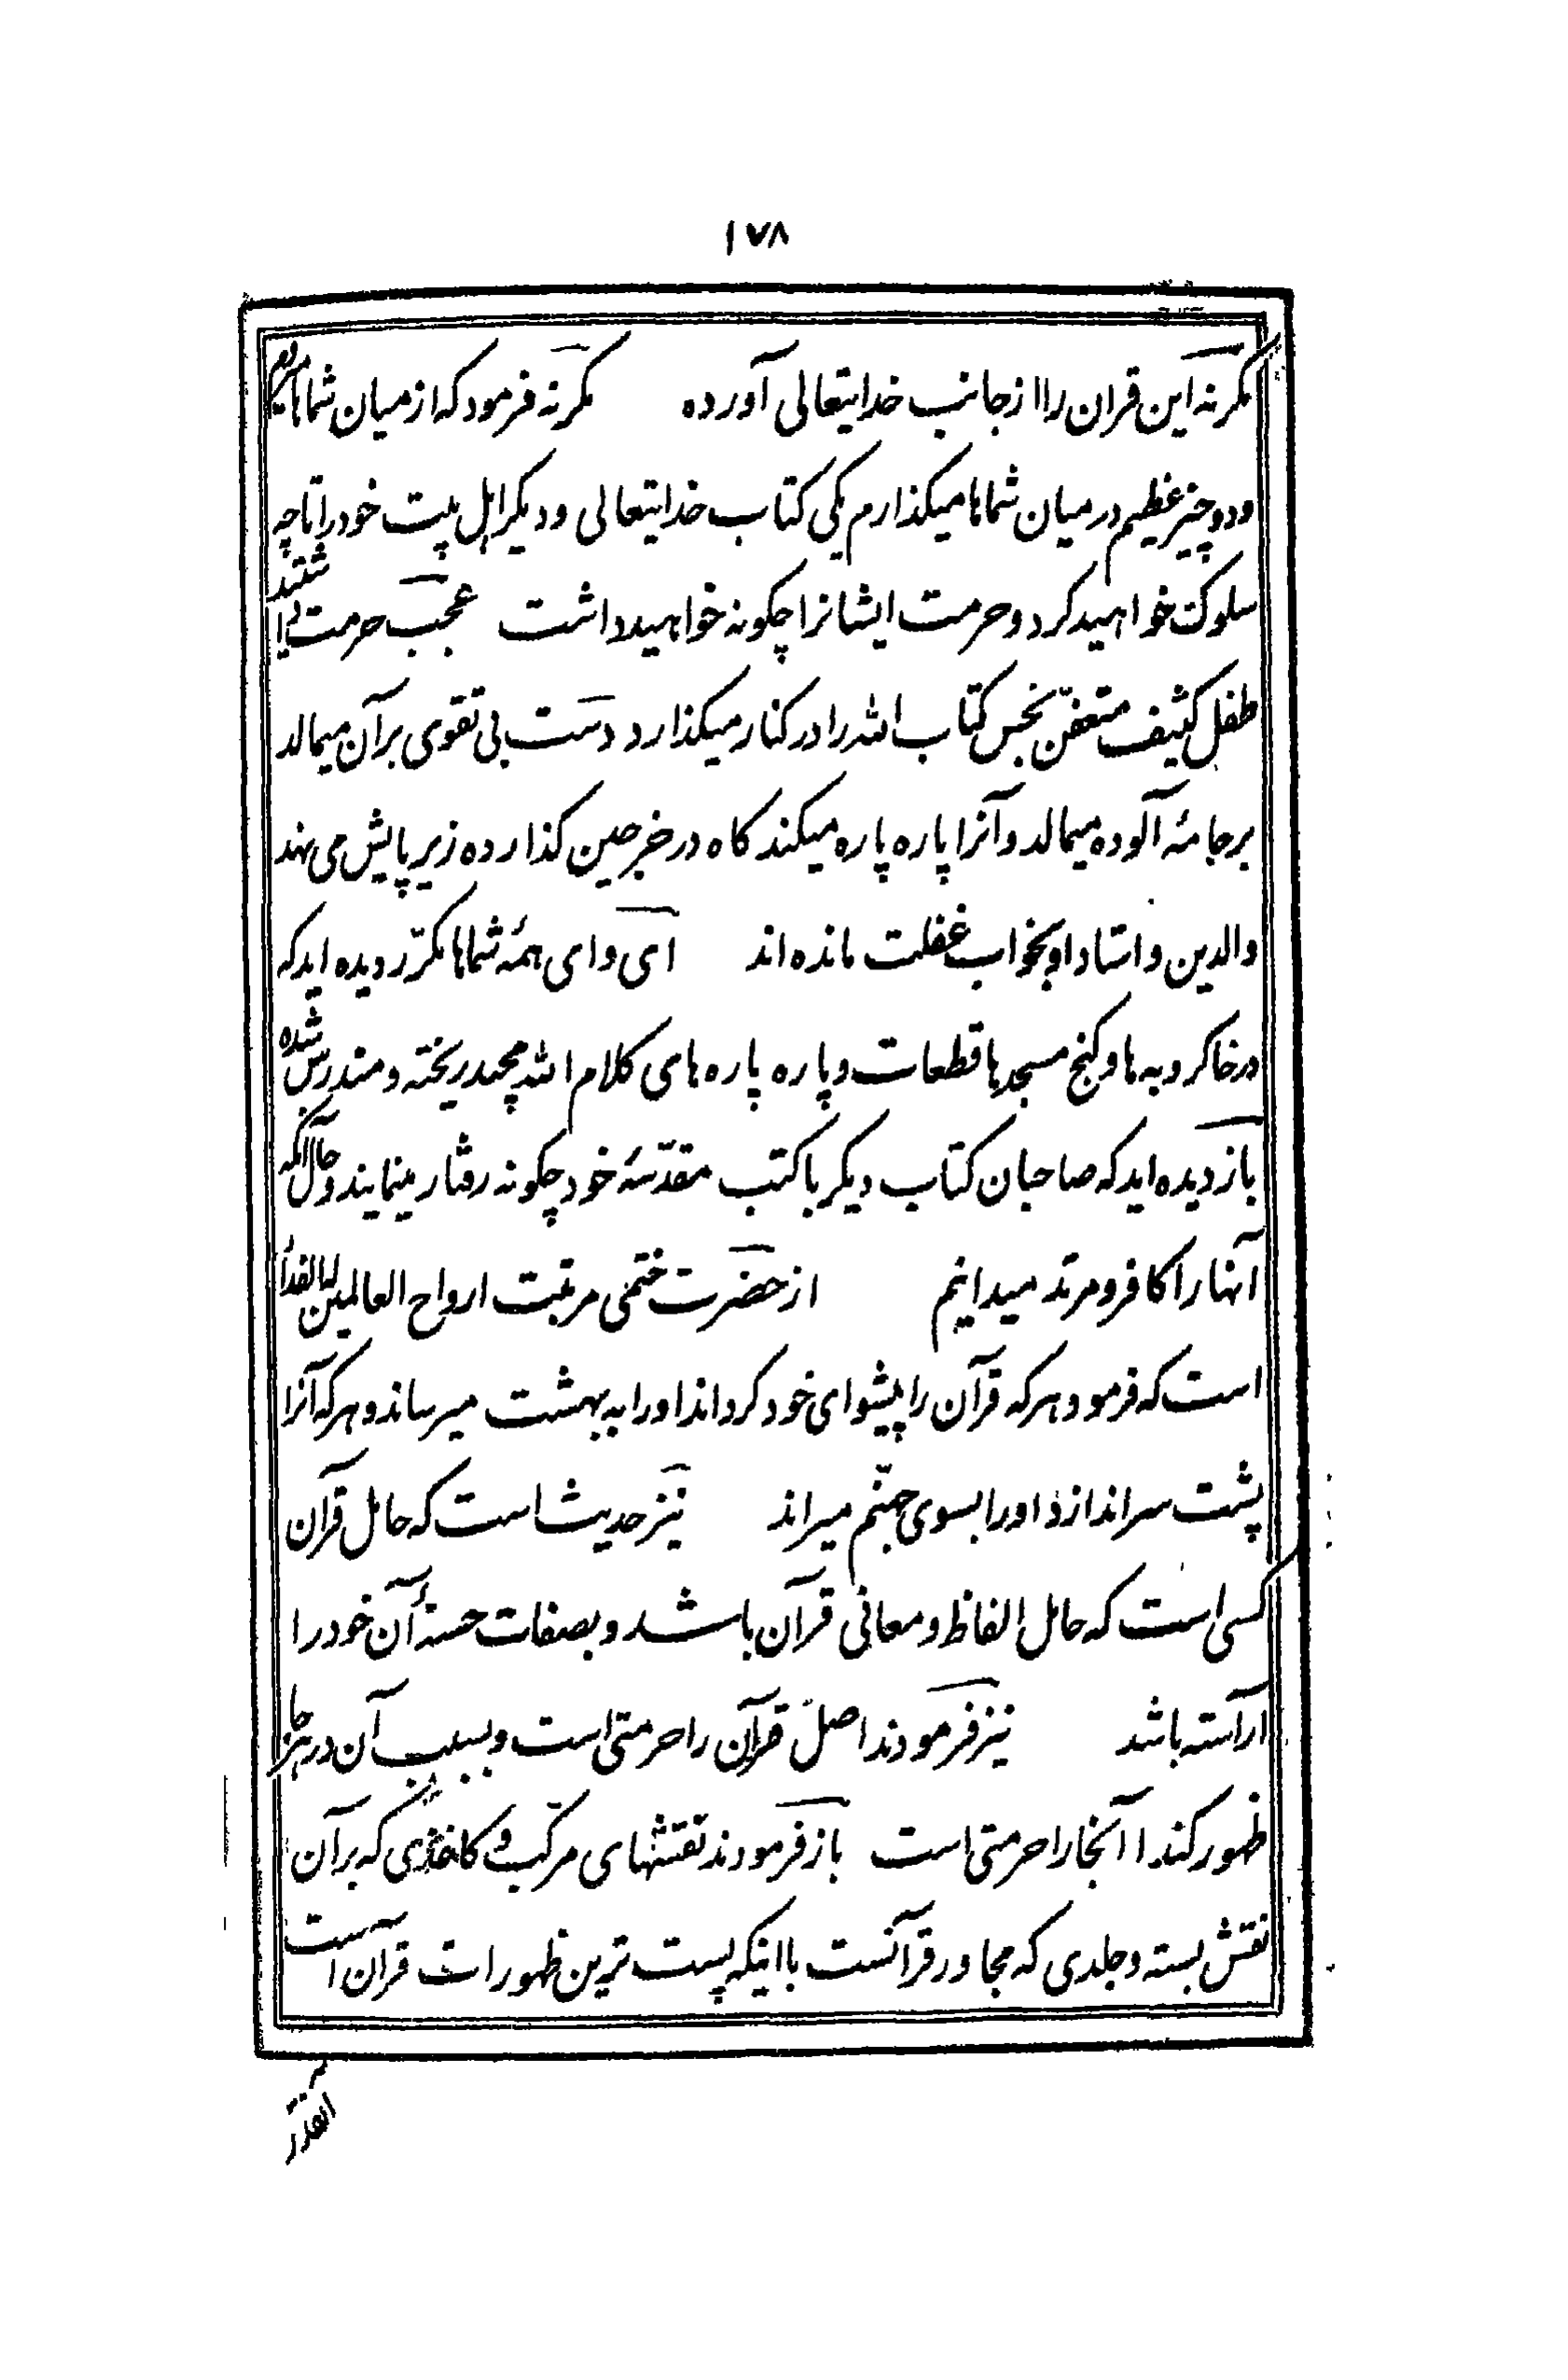 ۱۷۸
مگر نه این قران را از جانب خدایتعالی آورده مگر نه فرمود که از میان شماها میروم
و دو چیز عظیم در میان شماها میکذارم یکی کتاب خدایتعالی و دیکر اهل بیت خود را تا چه
سلوک خواهید کرد و حرمت ایشانرا چکونه خواهید داشت عجب حرمت می داشتند
طفل کثیف متعفّن نجس کتاب الله را در کنار میکذارد دست بی تقوی بر آن میمالد
بر جامهٔ آلوده میمالد و آنرا پاره پاره میکند کاه در خرجین کذارده زیر پایش می نهد
والدین و استاد او بخواب غفلت مانده اند ای وای همهٔ شماها مکرّر دیده اید که
در خاکروبه ها و کنج مسجدها قطعات و پاره پاره های کلام الله مجید ریخته و مندرس شده
باز دیده اید که صاحبان کتاب دیکر با کتب مقدّسهٔ خود چکونه رفتار مینمایند و حال آنکه
آنها را کافر و مرتد میدانیم از حضرت ختمی مرتبت ارواح العالمین له الفدأ
است که فرمود هر که قرآن را پیشوای خود کرداند او را به بهشت میرساند و هر که آنرا
پشت سر اندازد او را بسوی جهنّم میراند نیز حدیث است که حامل قرآن
کسی است که حامل الفاظ و معانی قرآن باشد و بصفات حسنهٔ آن خود را
آراسته باشد نیز فرمودند اصل قرآن را حرمتی است و بسبب آن در هر جا
ظهور کند آنجا را حرمتی است باز فرمودند نقشهای مرکّب و کاغذی که بر آن
نقش بسته و جلدی که مجاور قرآنست با اینکه پست ترین ظهورات قرآن است
آنقدر